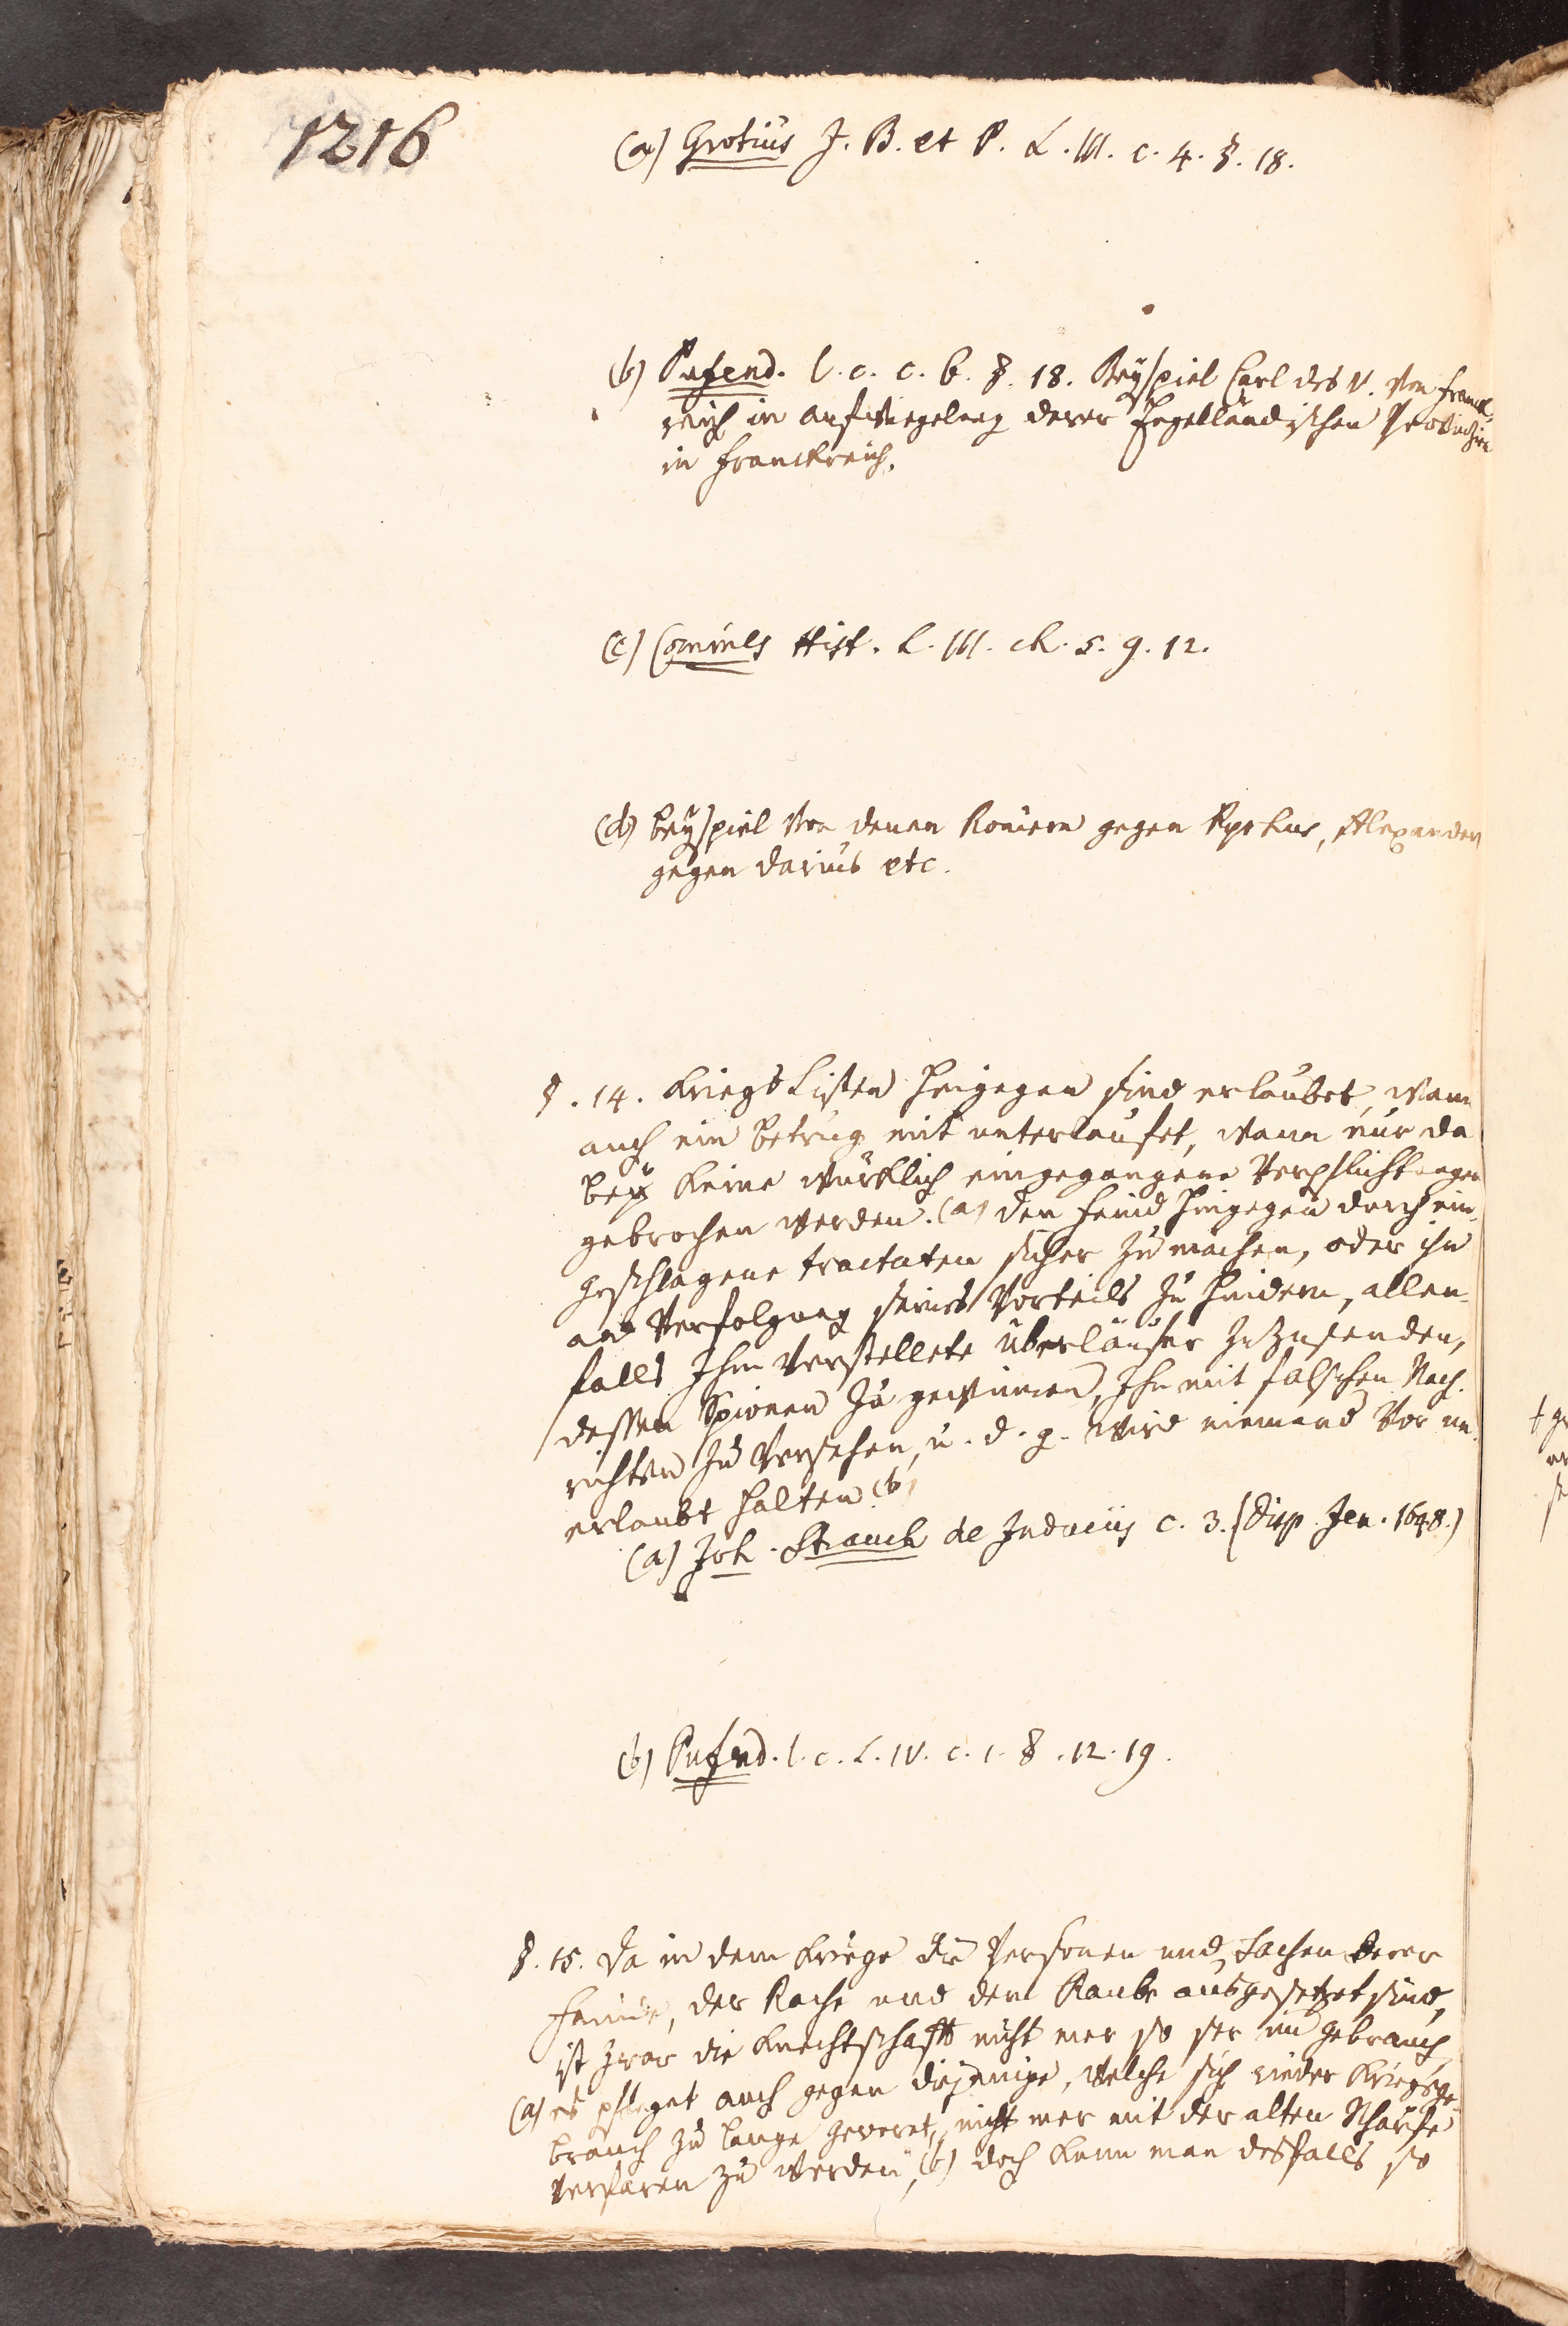 1216
(a) Grotius J. B. et P. L. III. c. 4. §. 18.
(b) Pufend. l. c. c. 6. §. 18. Beÿspiel Carl des V. von Franck-
reich in aufwiegelung derer Engelländischen Provinzien
in Franckreich.
(c) Comines Hist. L. III. ch. 5. 9. 12.
(d) beÿspiel von denen Römern gegen Pyrhus, Alexanders
gegen Darius etc.
§. 14. Kriegs Listen hingegen sind erlaubet, wann
auch ein betrug mit unterlaufet, wann nur da
beÿ keine würklich eingegangene Verpflichtungen
gebrochen werden. (a) den Feind hingegen durch ein-
geschlagene tractaten sicher zu machen, oder ihn
an Verfolgung seines Vorteils zu hindern, allen-
falls Ihm verstellete überläufer zuzusenden,
dessen Spionen zu gewinnen, Ihn mit falschen Nach-
richten zu versehen, u. d. g. wird niemand vor un-
erlaubt halten (b)
(a) Joh. Strauch de Induciis c. 3. (Disp. Jen. 1648.)
(b) Pufend. l. c. L. IV. c. 1. §. 12. 19.
§. 15. Da in dem Kriege die Personen und Sachen derer
Feinde, der Rache und dem Raube ausgesetzet sind,
ist zwar die Knechtschafft nicht mer so ser im gebrauch
(a) es pfleget auch gegen diejenige, welche sich wieder Kriegsge-
brauch zu lange geweret, nicht mer mit der alten Schärfe
verfaren zu werden, (b) doch kann man desfalls so